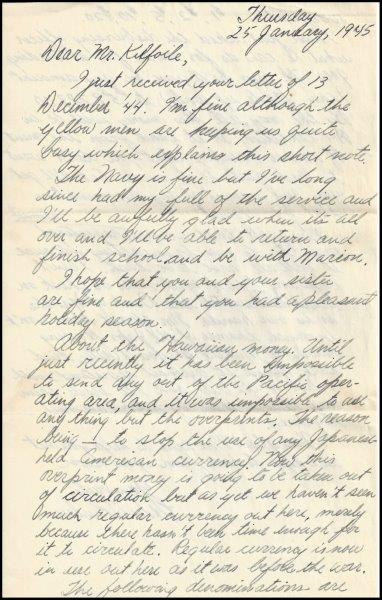 Thursday
25 January, 1945
Dear Mr. Kilfoile,
I just received your letter of 13
December 44. I'm fine although the
yellow men are keeping us quite
busy which explains this short note.
The Navy is fine but I've long
since had my full of the service and
I'll be awfully glad when its all
over and I'll be able to return and
finish school and be with Marion.
I hope that you and your sister
are fine and that you had a pleasant
holiday season.
About the Hawaiian money. Until
just recently it has been impossible
to send any out of the Pacific oper-
ating area, and it was impossible to use
any thing but the overprints. The reason
being — to stop the use of any Japanese
held American currency. Now this
overprint money is going to be taken out
of circulation but as yet we haven't seen
much regular currency out here, merely
because there hasn't been time enough for
it to circulate. Regular currency is now
in use out here as it was before the war.
The following denominations are